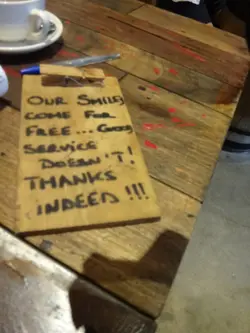 OUR SMILES
COME FOR
FREE... GOOD
SERVICE
DOESN'T!
THANKS
INDEED!!!